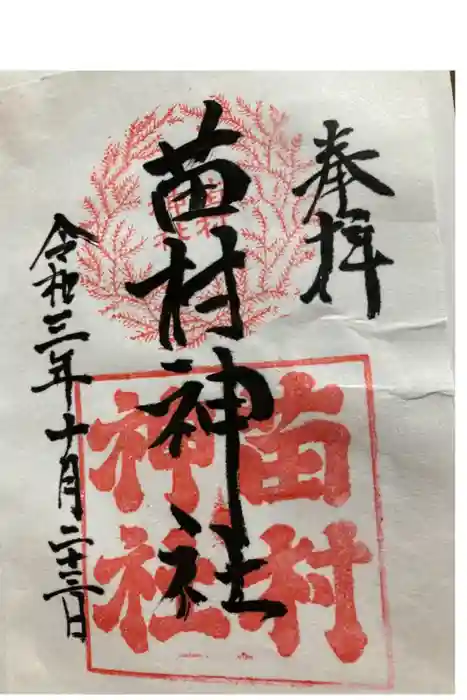 奉拝
苗村神社
令和三年十月二十三日
苗村
神社